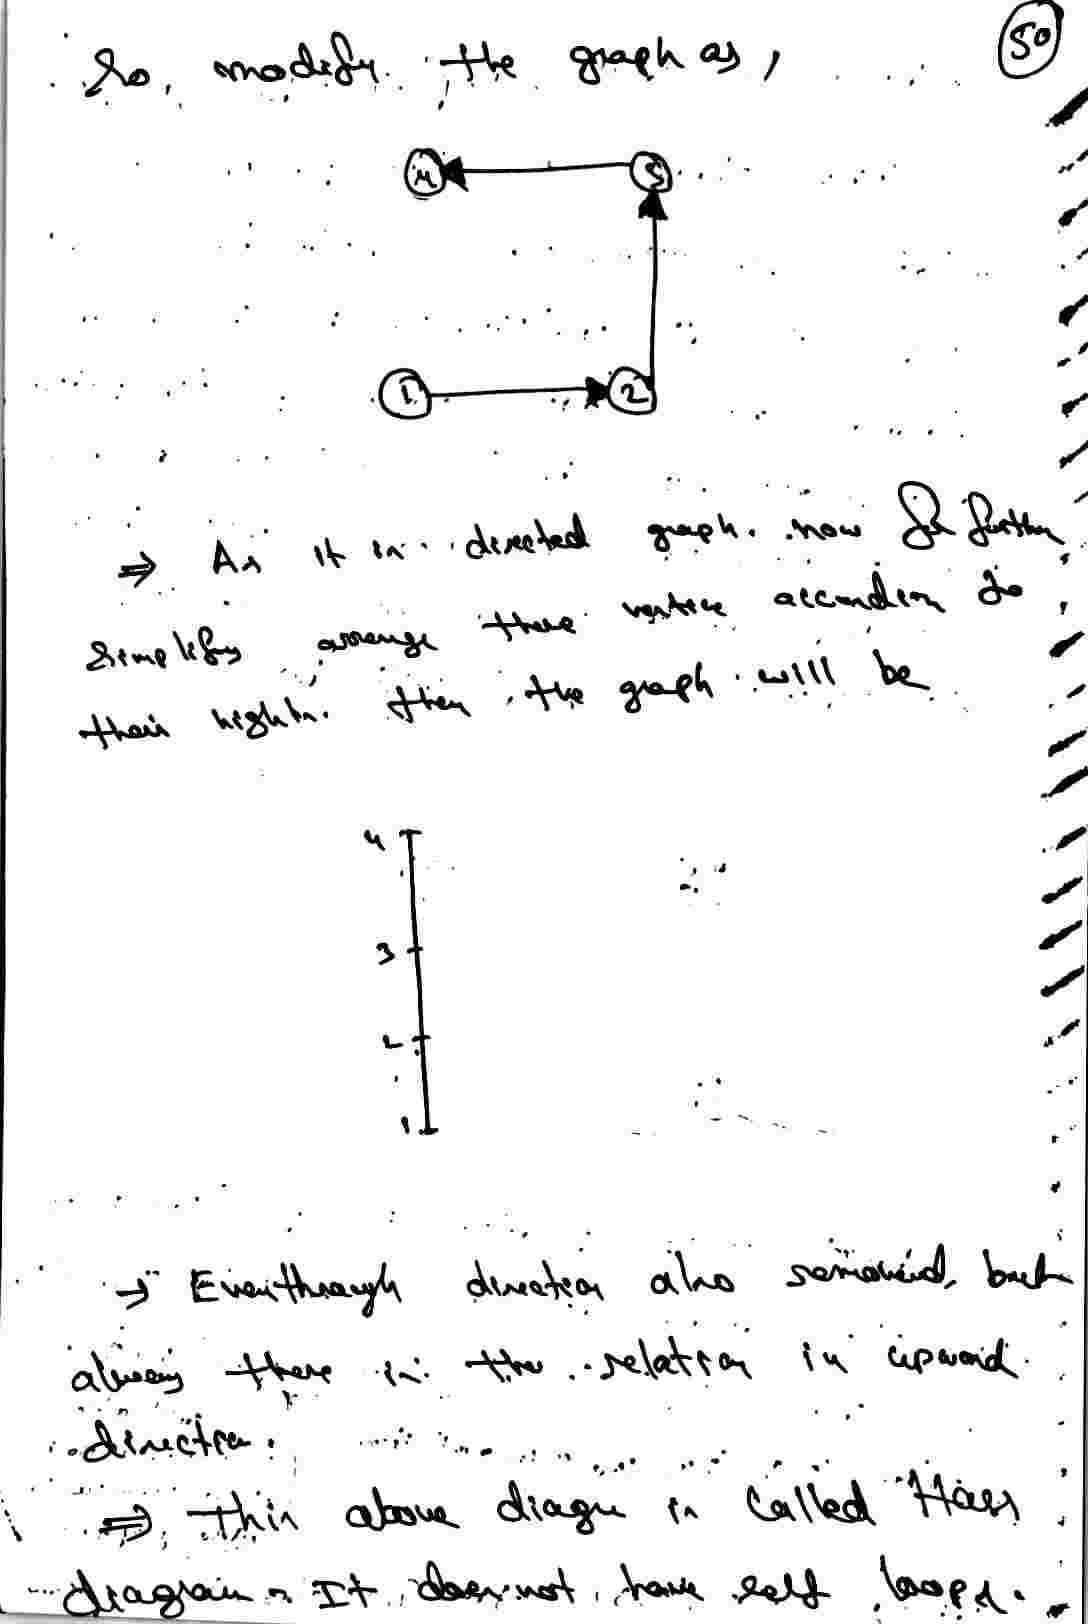 50
So, modify the graph as,
4 3
1 2
⇒ As it is directed graph. now for further
simplify arrange these vertice according to
their hights. then the graph will be
4
3
2
1
→ Eventhough direction also removed, but
always there is the relation in upward
direction.
⇒ This above diagm is called Hass
diagram. It does not have self loops.